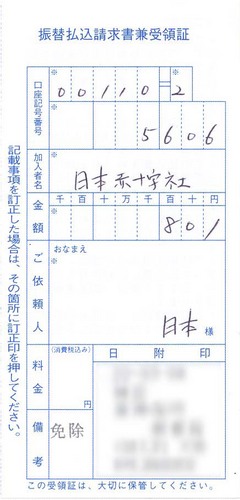 振替払込請求書兼受領証
口座記号番号
※ 00110=※2
※ 5606
加入者名
※ 日本赤十字社
金額
千百十万千百十円
※ 801
ご依頼人
おなまえ
※
日本 様
料金
(消費税込み)
円
日附印
備考
免除
記載事項を訂正した場合は、その箇所に訂正印を押してください。
この受領証は、大切に保管してください。